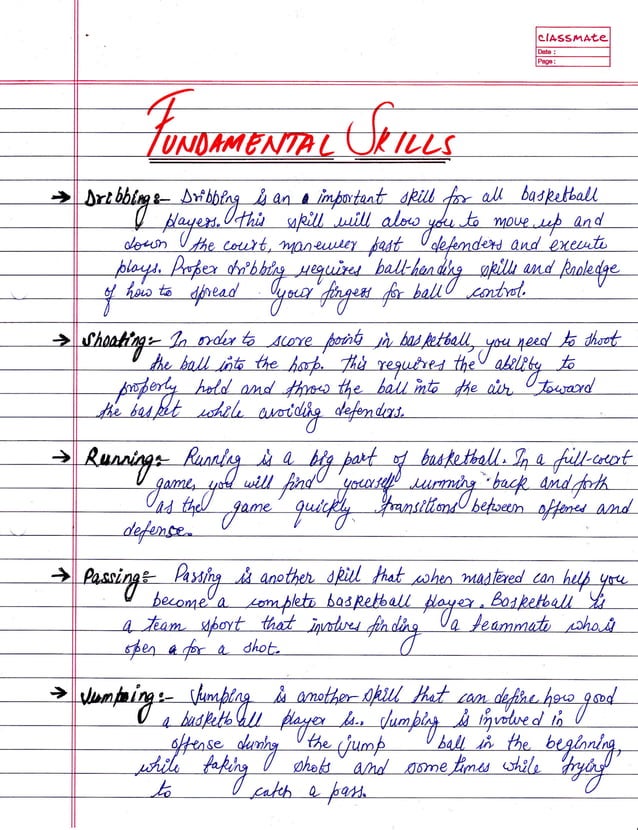 classmate
Date :
Page :
FUNDAMENTAL SKILLS
→ Dribbing:- Dribbing is an important skill for all basketball
players. This skill will alow you to move up and
down the court, maneuver past defenders and execute
plays. Proper dribbing requires ball-handing skills and knoledge
of how to spread your fingers for ball control.
→ Shoating:- In order to score points in basketball, you need to shoot
the ball into the hoop. This requires the ability to
properly hold and throw the ball into the air toward
the basket while avoiding defenders.
→ Running:- Running is a big part of basketball. In a full-court
game, you will find yourself running back and forth
as the game quickly transitions between offenes and
defense.
→ Passing:- Passing is another skill that when mastered can help you
become a complete basketball player. Basketball is
a team sport that involves finding a teammate who is
open for a shot.
→ Jumping:- Jumping is another skill that can define how good
a basketball player is.. Jumping is involved in
offense during the jump ball in the beginning,
while taking shots and sometimes while trying
to catch a pass.